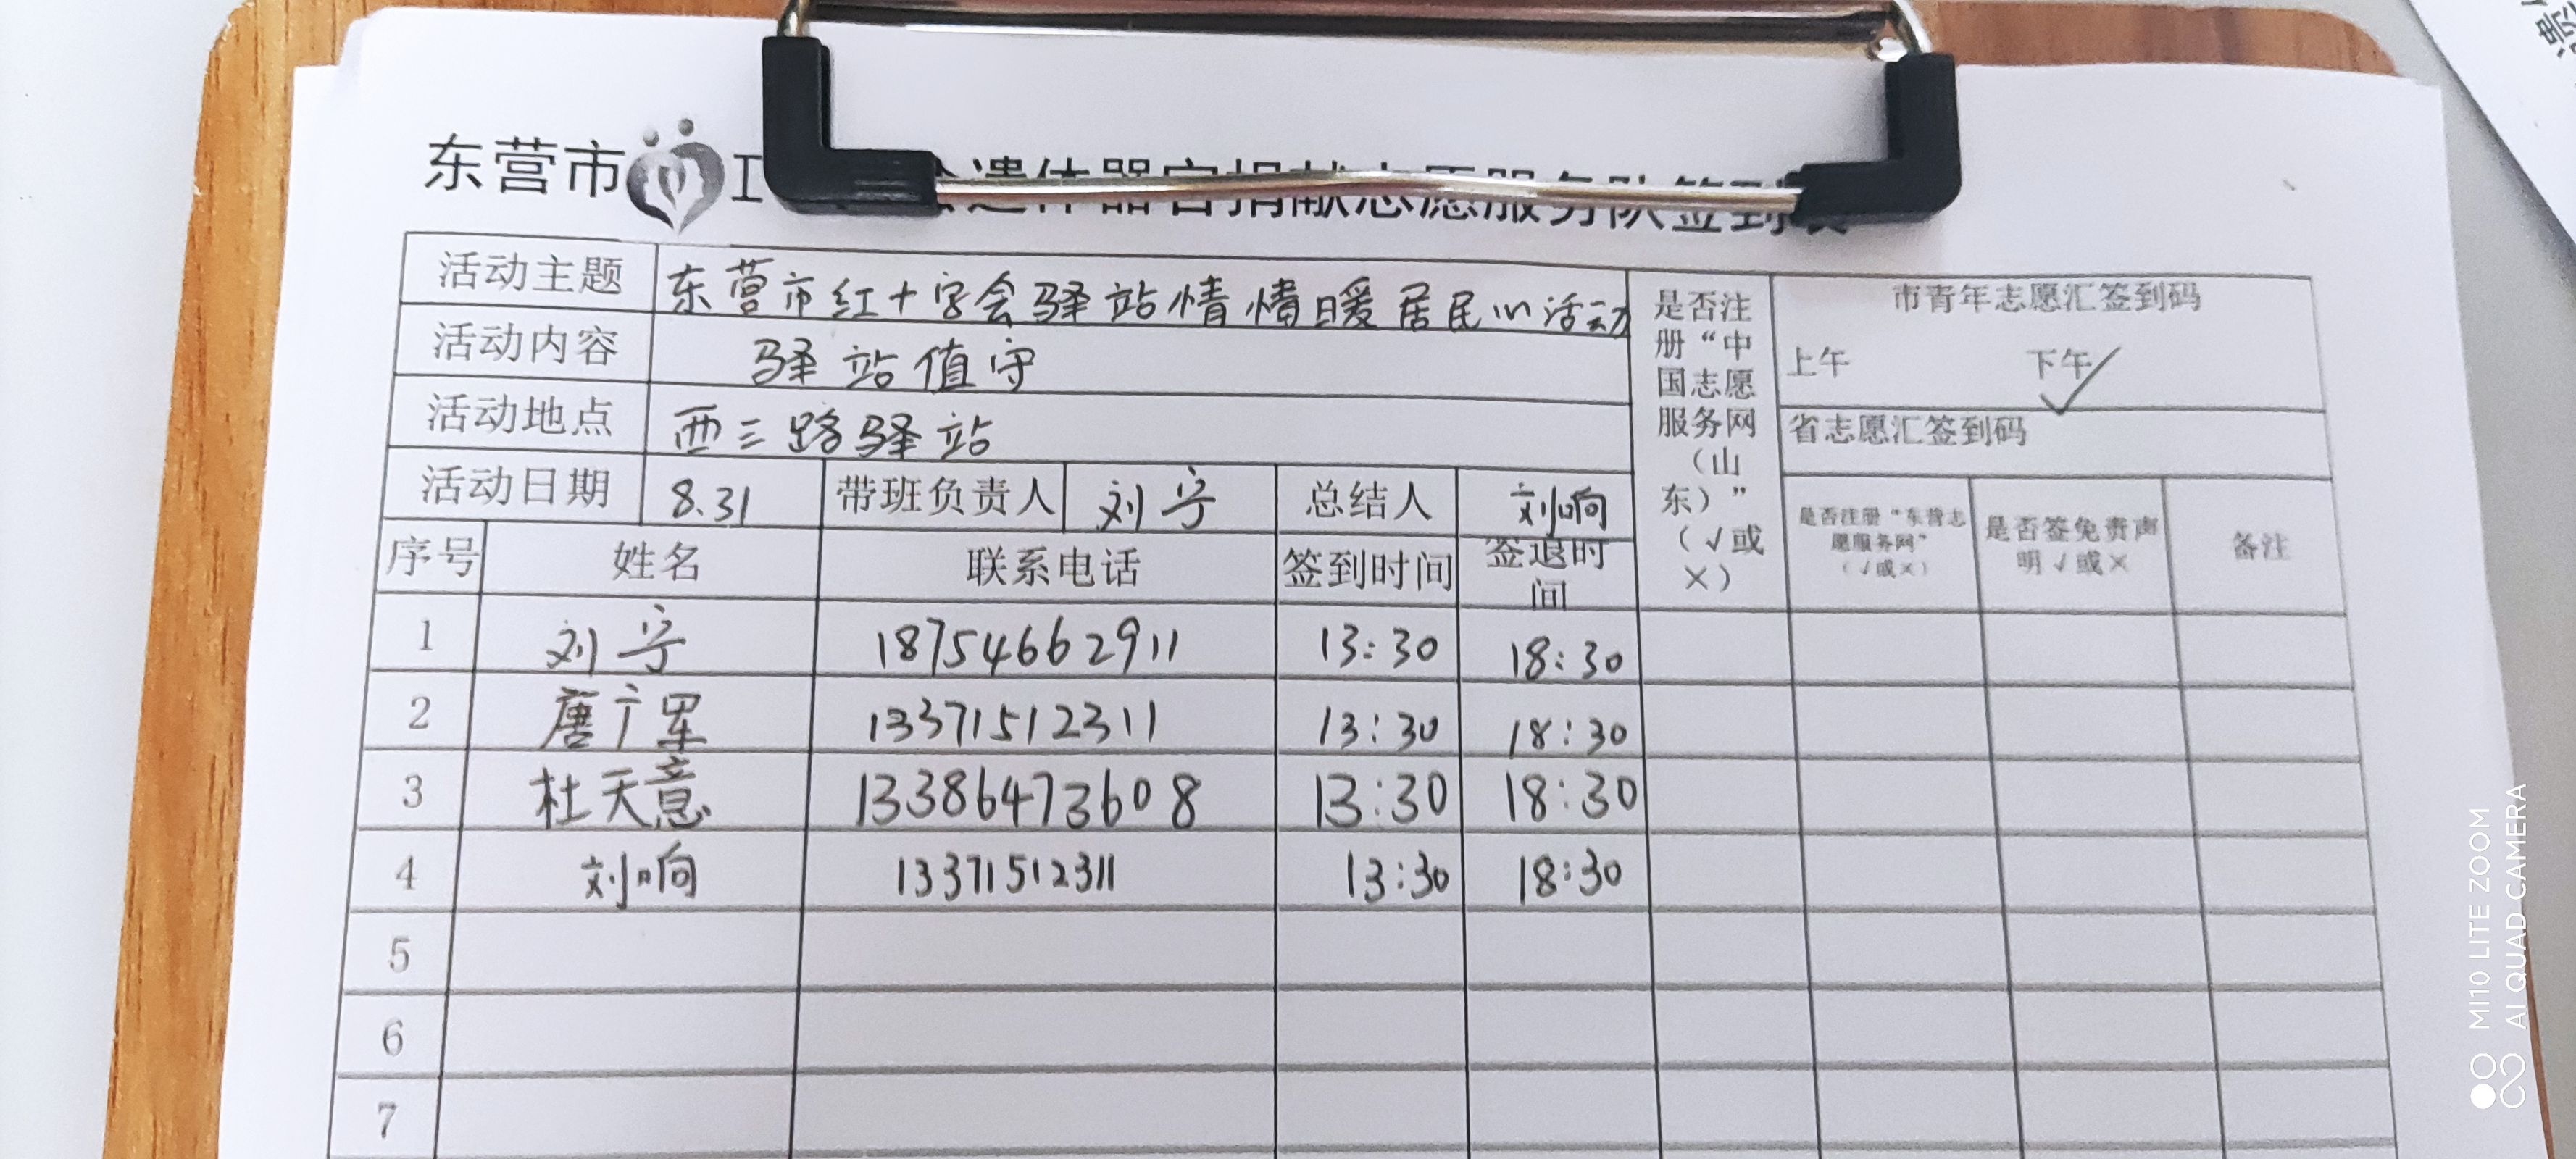 东营市 遗体器官捐献志愿服务队签到表
活动主题 东营市红十字会驿站情情暖居民心活动
活动内容 驿站值守
活动地点 西三路驿站
活动日期 8.31 带班负责人 刘宁 总结人 刘响
是否注册“中国志愿服务网（山东）”（√或×）
市青年志愿汇签到码
上午 下午 ✓
省志愿汇签到码
序号 姓名 联系电话 签到时间 签退时间 是否注册“东营志愿服务网”（√或×） 是否签免责声明√或× 备注
1 刘宁 18754662911 13:30 18:30
2 唐广军 13371512311 13:30 18:30
3 杜天意 13386473608 13:30 18:30
4 刘响 13371512311 13:30 18:30
5
6
7
MI10 LITE ZOOM
AI QUAD CAMERA